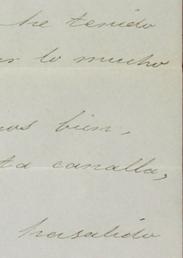 he tenido
r lo mucho
nos bien,
ta canalla,
ha salido